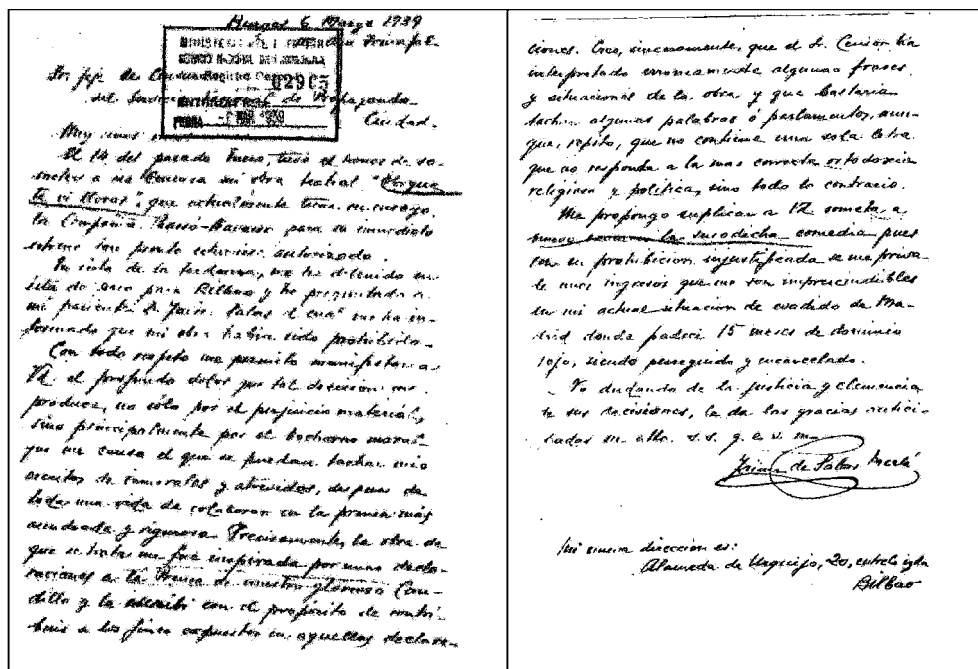 Burgos 6 Marzo 1939
Triunfal.
MINISTERIO
SERVICIO NACIONAL DE PROPAGANDA
02905
ENTRADA
FECHA - MAR 1939
Sr. Jefe de Censura
del Servicio de Propaganda
Ciudad.
Muy
El 14 del pasado Enero, tuve el honor de so-
meter a esa Censura mi obra teatral "Porque
te vi llorar", que actualmente tiene en ensayo,
la Compañía para su inmediato
estreno tan pronto estuviese autorizada.
En vista de la tardanza, me he detenido en
ésta de paso para Bilbao y he preguntado a
mi pariente D. Javier Salas el cual me ha in-
formado que mi obra había sido prohibida.
Con todo respeto me permito manifestar a
Vd. el profundo dolor que tal decisión me
produce, no sólo por el perjuicio material,
sino principalmente por el bochorno moral
que me causa el que se puedan tachar mis
escritos de inmorales y atrevidos, después de
toda una vida de colaborar en la prensa más
acendrada y rigurosa. Precisamente, la obra de
que se trata me fué inspirada por unas decla-
raciones a la Prensa de nuestro glorioso Cau-
dillo y la escribí con el propósito de contri-
buir a los fines expuestos en aquellas declara-
ciones. Creo, sinceramente, que el Sr. Censor ha
interpretado erroneamente algunas frases
y situaciones de la obra y que bastaria
tachar algunas palabras ó parlamentos, aun-
que, repito, que no contiene una sola letra
que no responda a la mas correcta ortodoxia
religiosa y política, sino todo lo contrario.
Me propongo suplicar a Vd. someta a
nuevo la susodicha comedia pues
con su prohibicion injustificada se me priva
de unos ingresos que me son imprescindibles
en mi actual situacion de evadido de Ma-
drid donde padecí 15 meses de dominio
rojo, siendo perseguido y encarcelado.
No dudando de la justicia y clemencia
de sus decisiones, le da las gracias antici-
padas su affo. s.s. q. e. s. m.
Jaime de Salas Merlé
Mi nueva direccion es:
Alameda de Urquijo, 20, entrlo izda
Bilbao